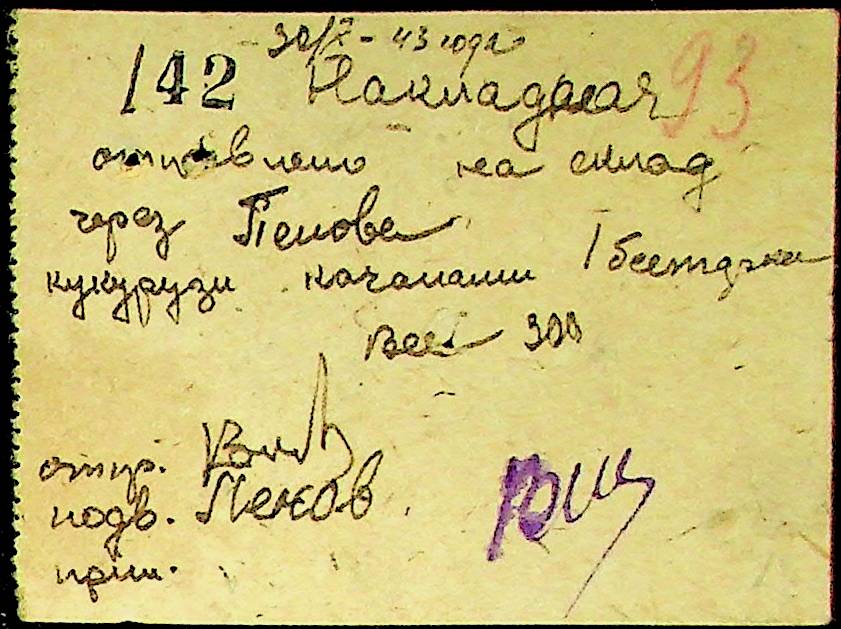 30/X - 43 года
142 Накладная 93
отправлено на склад
через Пенова
кукурузи качанами 1 бестарка
вес 300
отпр.
подв. Пенов
прин.